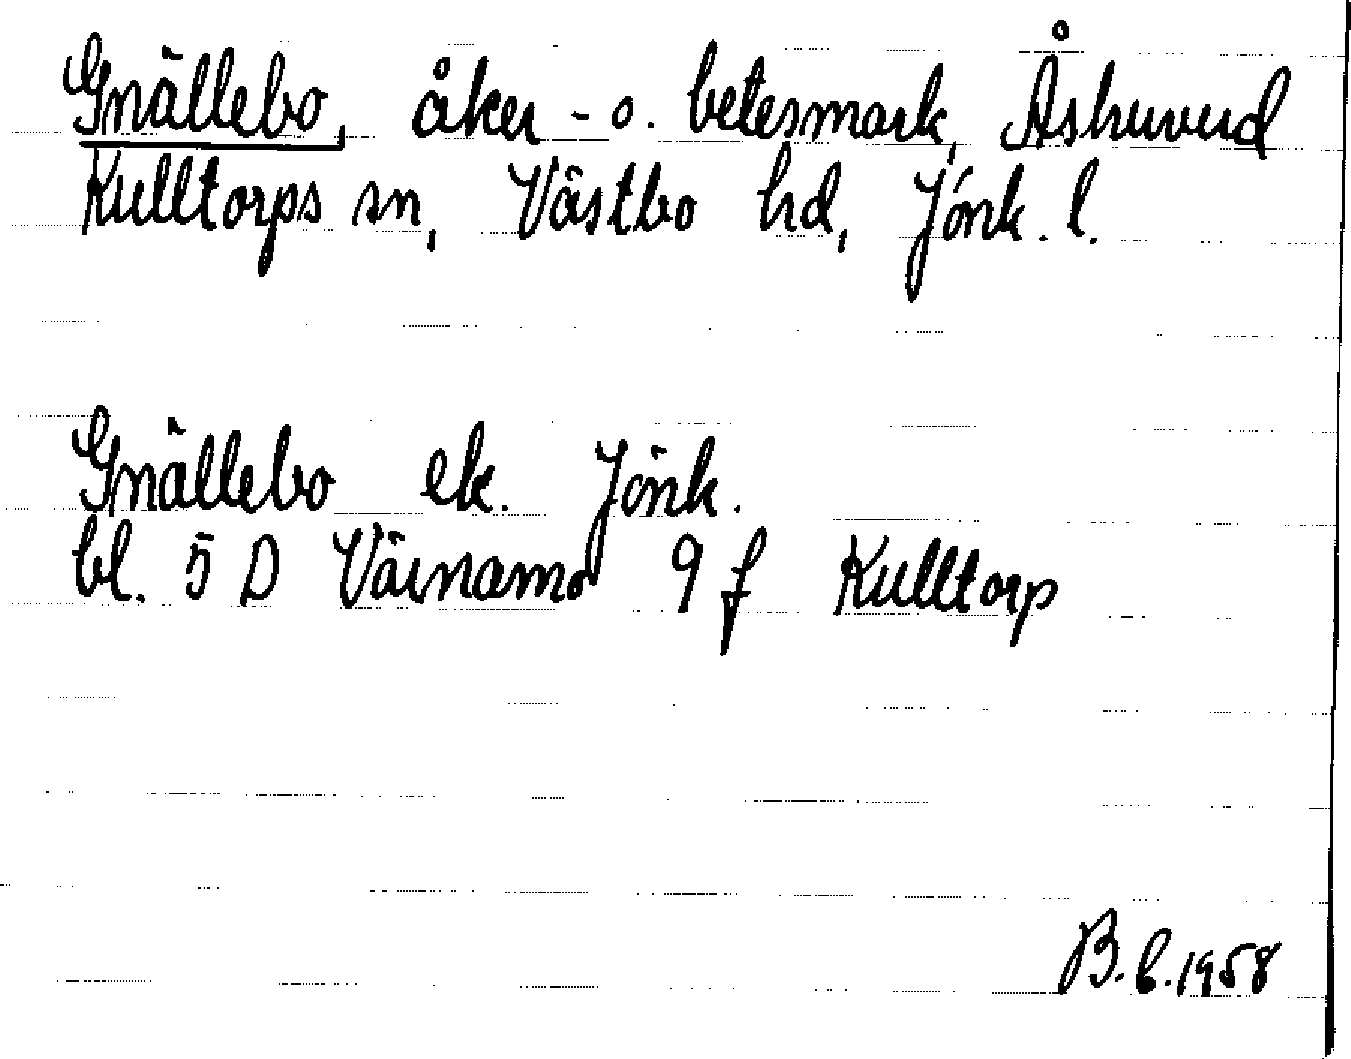 Gnällebo, åker- o. betesmark, Åshuvud
Kulltorps sn, Västbo hd, Jönk. l.
Gnällebo ek. Jönk.
bl. 5 D Värnamo 9 f Kulltorp
B. L. 1958